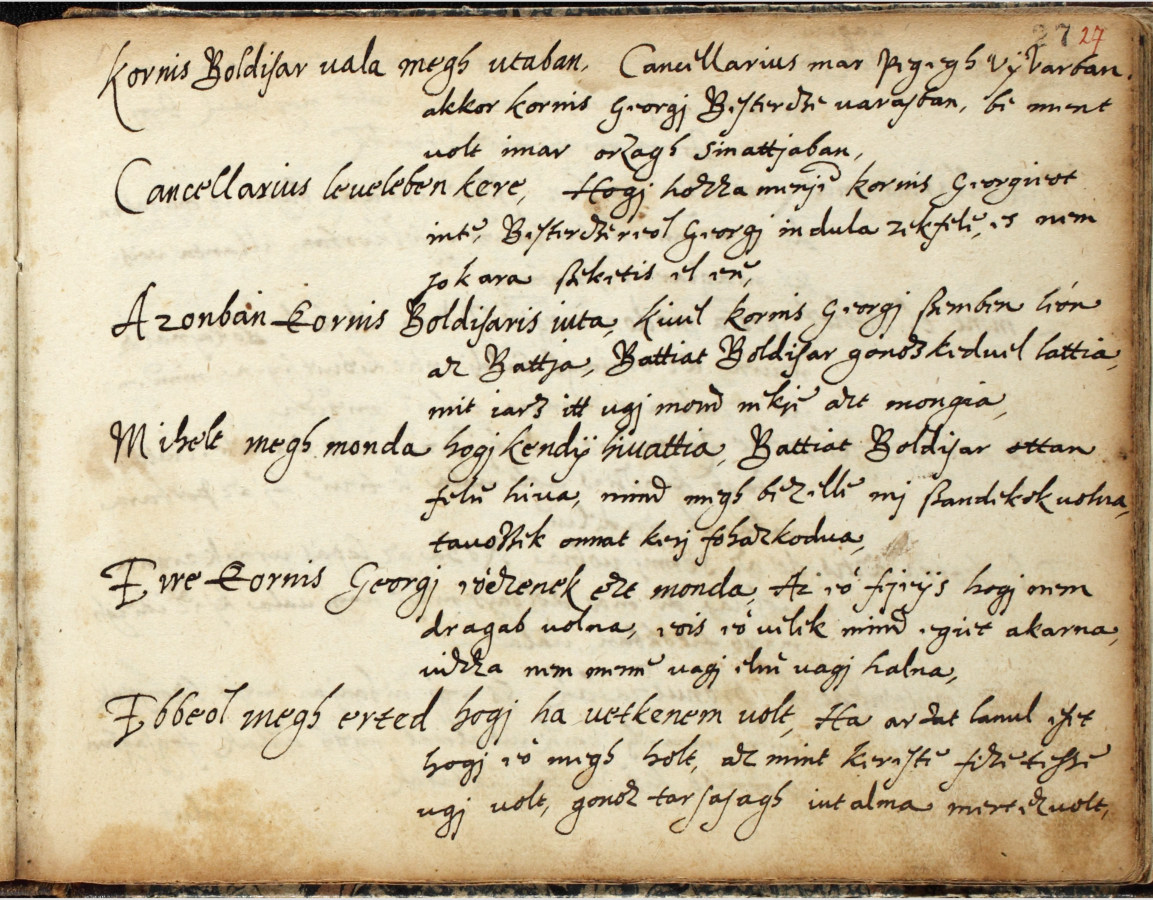 27 27
Kornis Boldisar vala megh utaban, Cancellarius mar pegegh uy varban,
akkor kornis Georgj Besterdze varasban, be ment
volt imar orzagh sinattjaban,
Cancellarius leveleben kere, Hogj hozza menje kornis Georgieot
inte, Besterdzereol Georgj indula zekfele, es nem
sokara szeketis el ere,
Azonban Kornis Boldisaris iuta, kivel kornis Georgj szemben leon
az Battja, Battiat Boldisar gonosz keduel lattia,
mit iarsz itt ugj mond nekje azt mongia,
Mihelt megh monda hogj kendy hivattia, Battiat Boldisar ottan
felre hiva, mind megh bezelle mj szandekok volna,
tavozzek onnat kerj fohazkodva,
Erre Kornis Georgj eoczenek ezt monda, Az eo fejeys hogj nem
dragab volna, eois eo velek mind egiet akarna,
vizza nem menne vagj elne vagj halna,
Ebbeol megh erted hogj ha vetkenem volt, Ha artat lanul eset
hogj eo megh holt, az mint kereste fizetesse
ugj volt, gonosz tarsasagh iutalma mert ez volt,